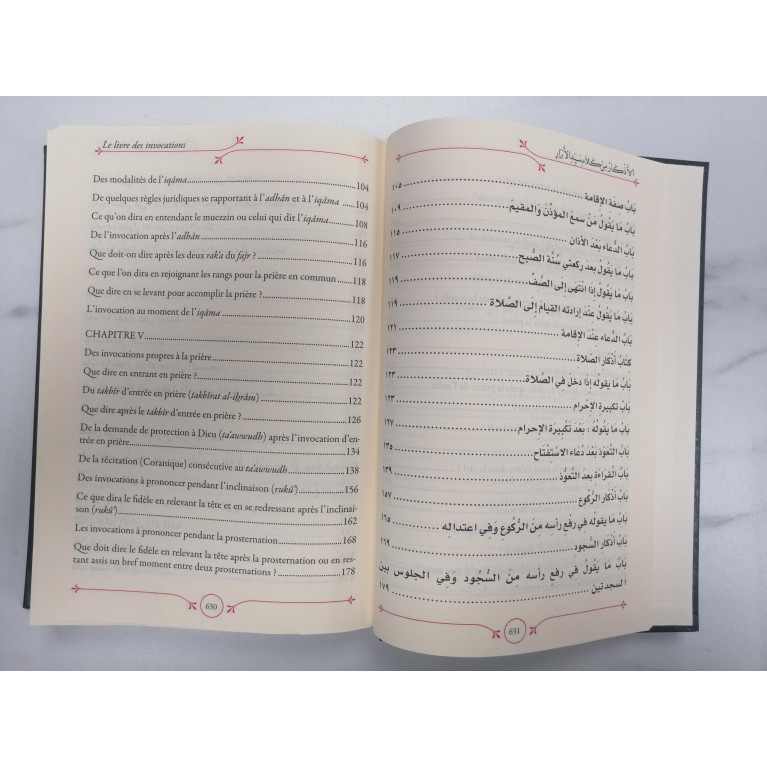 Le livre des invocations
Des modalités de l'iqâma ........ 104
De quelques règles juridiques se rapportant à l'adhân et à l'iqâma ........ 104
Ce qu'on dira en entendant le muezzin ou celui qui dit l'iqâma ........ 108
De l'invocation après l'adhân ........ 116
Que doit-on dire après les deux rak'a du fajr ? ........ 116
Ce que l'on dira en rejoignant les rangs pour la prière en commun ........ 118
Que dire en se levant pour accomplir la prière ? ........ 118
L'invocation au moment de l'iqâma ........ 120
CHAPITRE V ........ 122
Des invocations propres à la prière ........ 122
Que dire en entrant en prière ? ........ 122
Du takbîr d'entrée en prière (takbîrat al-iḥrâm) ........ 122
Que dire après le takbîr d'entrée en prière ? ........ 126
De la demande de protection à Dieu (ta'awwudh) après l'invocation d'en-
trée en prière ........ 134
De la récitation (Coranique) consécutive au ta'awwudh ........ 138
Des invocations à prononcer pendant l'inclinaison (rukû') ........ 156
Ce que dira le fidèle en relevant la tête et en se redressant après l'inclinai-
son (rukû') ........ 162
Les invocations à prononcer pendant la prosternation ........ 168
Que doit dire le fidèle en relevant la tête après la prosternation ou en res-
tant assis un bref moment entre deux prosternations ? ........ 178
630
الأذكار من كلام سيد الأبرار
بَابُ صفة الإقامة ........ ١٠٥
بَابُ مَا يَقُولُ مَنْ سمعَ المؤذّنَ وَالمقيمَ ........ ١٠٩
بَابُ الدُّعاء بَعْدَ الأذان ........ ١١٥
بَابُ مَا يقولُ بعد ركعتي سُنَّة الصُّبح ........ ١١٧
بَابُ مَا يَقُولُ إذا انْتَهَى إلَى الصَّفِّ ........ ١١٩
بَابُ مَا يَقُولُ عنْدَ إرادته القيامَ إلَى الصَّلاة ........ ١١٩
بَابُ الدُّعاء عنْدَ الإقامة ........ ١٢١
كتابُ أذكار الصَّلاة ........ ١٢٣
بَابُ مَا يقولُه إذا دخلَ في الصَّلاة ........ ١٢٣
بَابُ تكبيرة الإحْرام ........ ١٢٣
بَابُ مَا يقولُهُ : بَعْدَ تكبيرة الإحرام ........ ١٢٧
بَابُ التَّعَوّذ بَعْدَ دُعَاء الاسْتفْتَاح ........ ١٣٥
بَابُ القراءة بعد التَّعوُّذ ........ ١٣٩
بَابُ أذكار الرُّكُوع ........ ١٥٧
بَابُ مَا يقوله في رفع رأسه منَ الرُّكُوع وَفي اعتداله ........ ١٦٥
بَابُ أذكار السُّجود ........ ١٦٩
بَابُ مَا يَقُولُ في رفع رأسه منَ السُّجُود وَفي الجلوس بين
السجدتين ........ ١٧٩
631